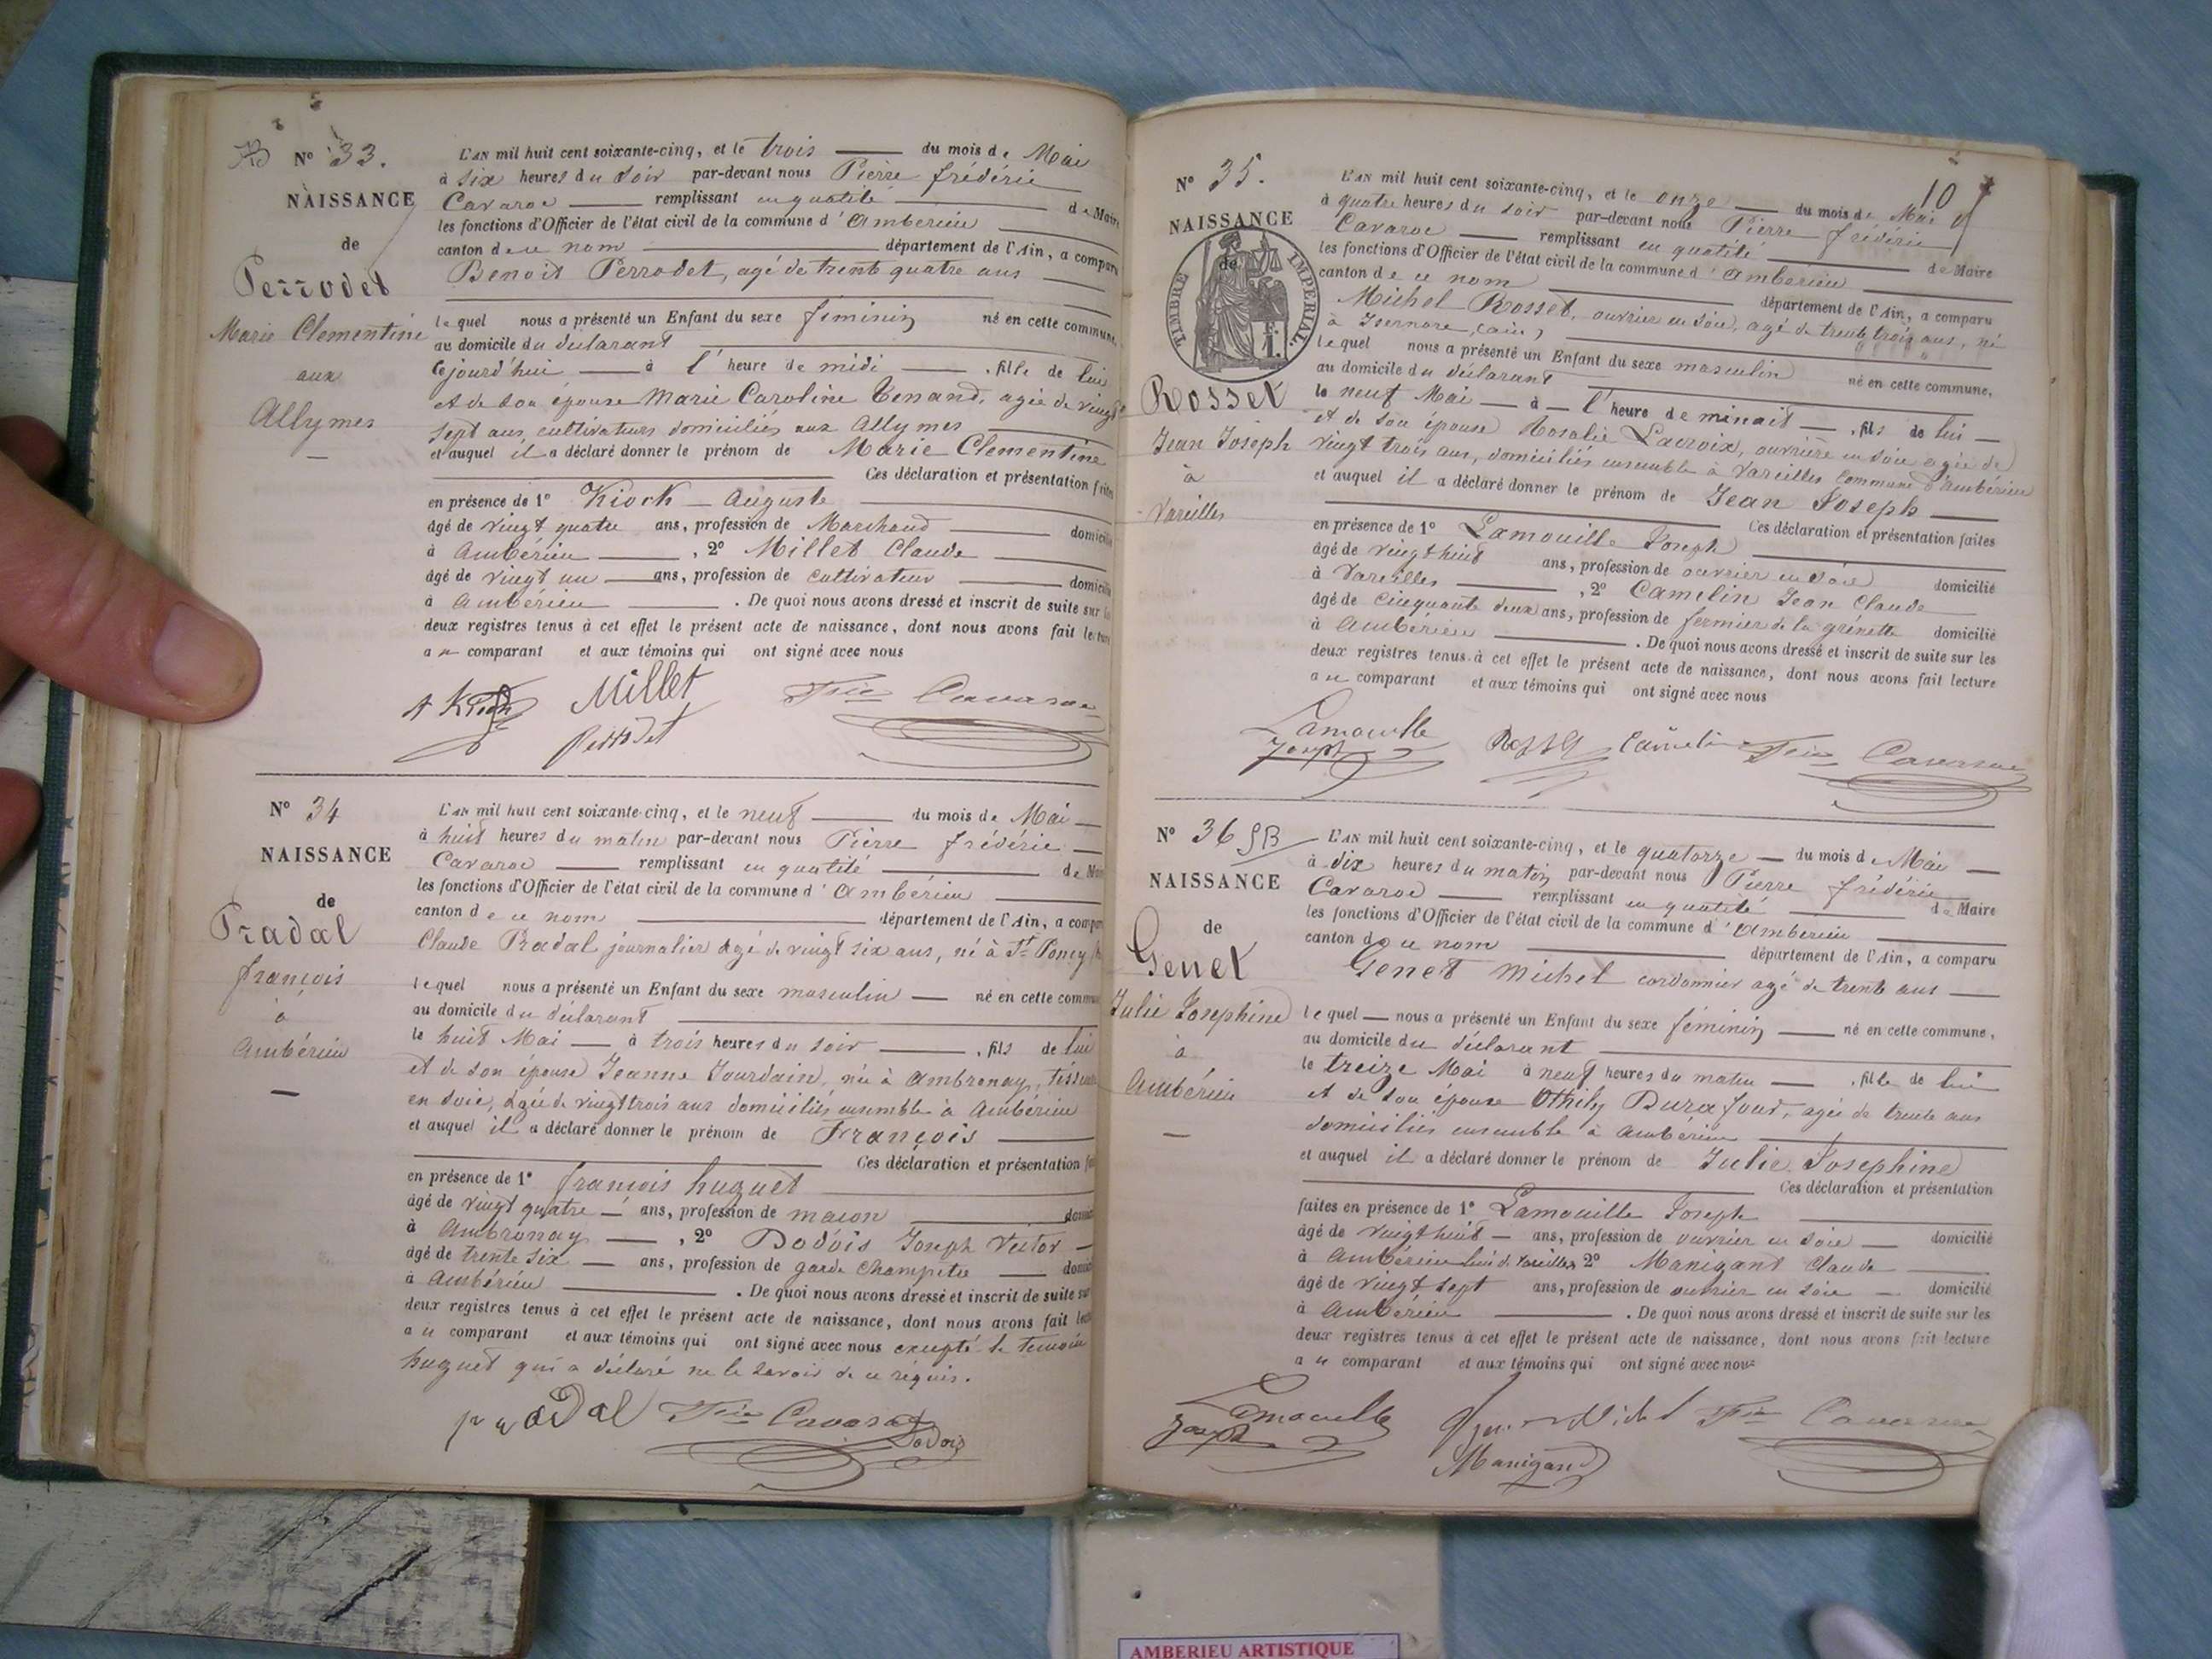 N° 33.
NAISSANCE
de
Perrodet
Marie Clementine
aux
Allymes
L'AN mil huit cent soixante-cinq, et le trois du mois de Mai
à six heures du soir par-devant nous Pierre frédéric
Cavaroc remplissant en qualité de Maire
les fonctions d'Officier de l'état civil de la commune d'Ambérieu
canton de ce nom département de l'Ain, a comparu
Benoit Perrodet, agé de trente quatre ans
lequel nous a présenté un Enfant du sexe féminin né en cette commune,
au domicile du déclarant
cejourd'hui à l'heure de midi , fille de lui
et de son épouse Marie Caroline Tenand, agée de vingt
sept ans, cultivateurs domiciliés aux Allymes
et auquel il a déclaré donner le prénom de Marie Clementine
Ces déclaration et présentation faites
en présence de 1° Kioch Auguste
âgé de vingt quatre ans, profession de Marchand domicilié
à Ambérieu , 2° Millet Claude
âgé de vingt un ans, profession de cultivateur domicilié
à Ambérieu . De quoi nous avons dressé et inscrit de suite sur les
deux registres tenus à cet effet le présent acte de naissance, dont nous avons fait lecture
au comparant et aux témoins qui ont signé avec nous
Millet
Perrodet
Cavaroc
N° 34
NAISSANCE
de
Pradal
françois
à
Ambérieu
L'AN mil huit cent soixante-cinq, et le neuf du mois de Mai
à huit heures du matin par-devant nous Pierre frédéric
Cavaroc remplissant en qualité de Maire
les fonctions d'Officier de l'état civil de la commune d'Ambérieu
canton de ce nom département de l'Ain, a comparu
Claude Pradal journalier agé de vingt six ans, né à St Poncy
lequel nous a présenté un Enfant du sexe masculin né en cette commune
au domicile du déclarant
le huit Mai à trois heures du soir , fils de lui
et de son épouse Jeanne Jourdain, née à Ambronay, tisseuse
en soie, agée de vingt trois ans domiciliés ensemble à Ambérieu
et auquel il a déclaré donner le prénom de François
Ces déclaration et présentation
en présence de 1° francois huguet
âgé de vingt quatre ans, profession de macon
à Ambronay , 2° Dodois Joseph Victor
âgé de trente six ans, profession de garde champetre
à Ambérieu . De quoi nous avons dressé et inscrit de suite sur
deux registres tenus à cet effet le présent acte de naissance, dont nous avons fait lecture
au comparant et aux témoins qui ont signé avec nous excepté le temoin
huguet qui a déclaré ne le savoir de ce réquis.
pradal Cavaroc Dodois
10
N° 35.
NAISSANCE
de
TIMBRE IMPERIAL.
Rosset
Jean Joseph
à
Vareilles
L'AN mil huit cent soixante-cinq, et le onze du mois de Mai
à quatre heures du soir par-devant nous Pierre frédéric
Cavaroc remplissant en qualité de Maire
les fonctions d'Officier de l'état civil de la commune d'Ambérieu
canton de ce nom département de l'Ain, a comparu
Michel Rosset, ouvrier en soie, agé de trente trois ans, né
à Izernore (ain)
lequel nous a présenté un Enfant du sexe masculin né en cette commune,
au domicile du déclarant
le neuf Mai à l'heure de minuit , fils de lui
et de son épouse Rosalie Lacroix, ouvrière en soie agée de
vingt trois ans, domiciliés ensemble à Vareilles commune d'Ambérieu
et auquel il a déclaré donner le prénom de Jean Joseph
Ces déclaration et présentation faites
en présence de 1° Lamouille Joseph
âgé de vingt huit ans, profession de ouvrier en soie domicilié
à Vareilles , 2° Camelin Jean Claude
âgé de cinquante deux ans, profession de fermier de la grénette domicilié
à Ambérieu . De quoi nous avons dressé et inscrit de suite sur les
deux registres tenus à cet effet le présent acte de naissance, dont nous avons fait lecture
au comparant et aux témoins qui ont signé avec nous
Lamouille Joseph Camelin Cavaroc
N° 36 SB
NAISSANCE
de
Genet
Julie Josephine
à
Ambérieu
L'AN mil huit cent soixante-cinq, et le quatorze du mois de Mai
à dix heures du matin par-devant nous Pierre frédéric
Cavaroc remplissant en qualité de Maire
les fonctions d'Officier de l'état civil de la commune d'Ambérieu
canton de ce nom département de l'Ain, a comparu
Genet Michel cordonnier agé de trente ans
lequel nous a présenté un Enfant du sexe féminin né en cette commune,
au domicile du déclarant
le treize Mai à neuf heures du matin , fille de lui
et de son épouse Othily Durafour, agée de trente ans
domiciliés ensemble à Ambérieu
et auquel il a déclaré donner le prénom de Julie Josephine
Ces déclaration et présentation
faites en présence de 1° Lamouille Joseph
âgé de vingt huit ans, profession de ouvrier en soie domicilié
à Ambérieu Vareilles 2° Manigand Claude
âgé de vingt sept ans, profession de ouvrier en soie domicilié
à Ambérieu . De quoi nous avons dressé et inscrit de suite sur les
deux registres tenus à cet effet le présent acte de naissance, dont nous avons fait lecture
au comparant et aux témoins qui ont signé avec nous
Lamouille Joseph Cavaroc
Manigand
AMBERIEU ARTISTIQUE